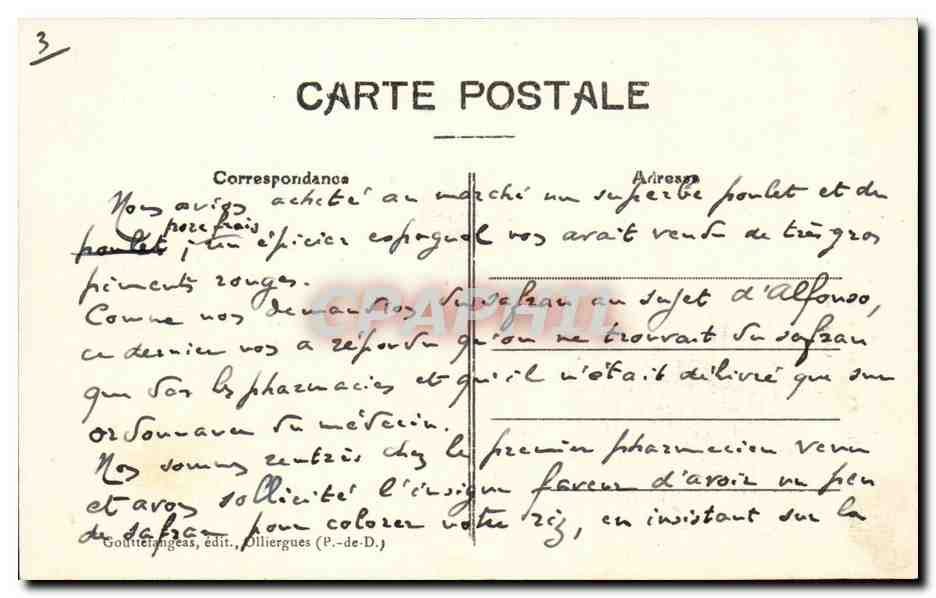 3
CARTE POSTALE
Correspondance
Adresse
Nous avions acheté au marché un superbe poulet et du
porc frais
poulet ; Un épicier espagnol nos avait vendu de très gros
piments rouges.
Comme nos demandions du safran au sujet d'Alfonso,
ce dernier nos a répondu qu'on ne trouvait du safran
que dans les pharmacies et qu'il n'était délivré que sur
ordonnance du médecin.
Nos sommes rentrés chez le premier pharmacien venu
et avons sollicité l'insigne faveur d'avoir un peu
de safran pour colorer notre riz, en insistant sur la
Gouttefangeas, édit., Olliergues (P.-de-D.)
CPAPHIL